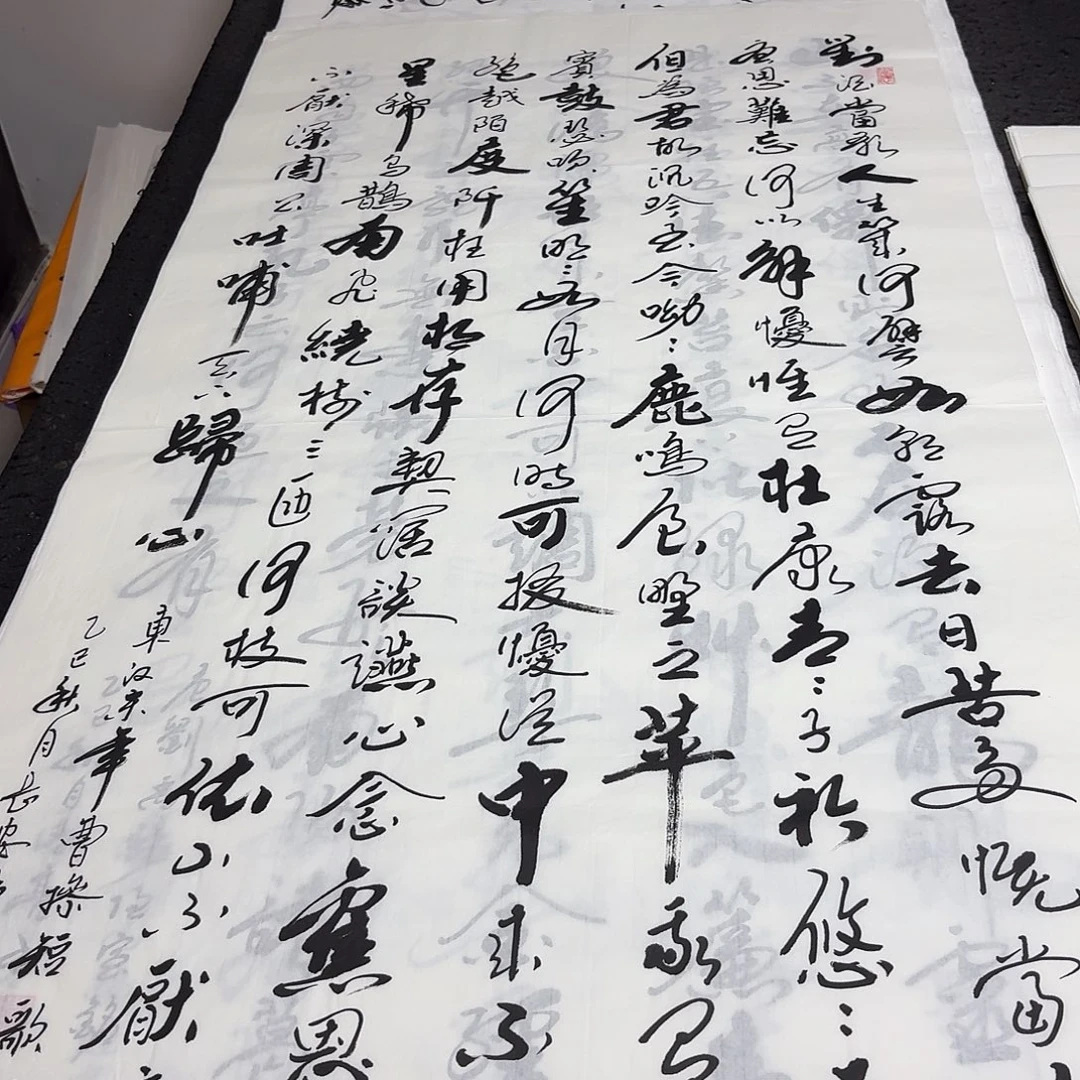 對酒當歌人生幾何譬如朝露去日苦多慨當
憂思難忘何以解憂惟有杜康青々子衿悠々
但為君故沉吟至今呦々鹿鳴食野之苹我有
賓鼓瑟吹笙明々如月何時可掇憂從中來不
絕越陌度阡枉用相存契闊談讌心念舊恩
星稀烏鵲南飛繞樹三匝何枝可依山不厭
不厭深周公吐哺天下歸心
東漢末年曹操短歌
乙巳秋月長安